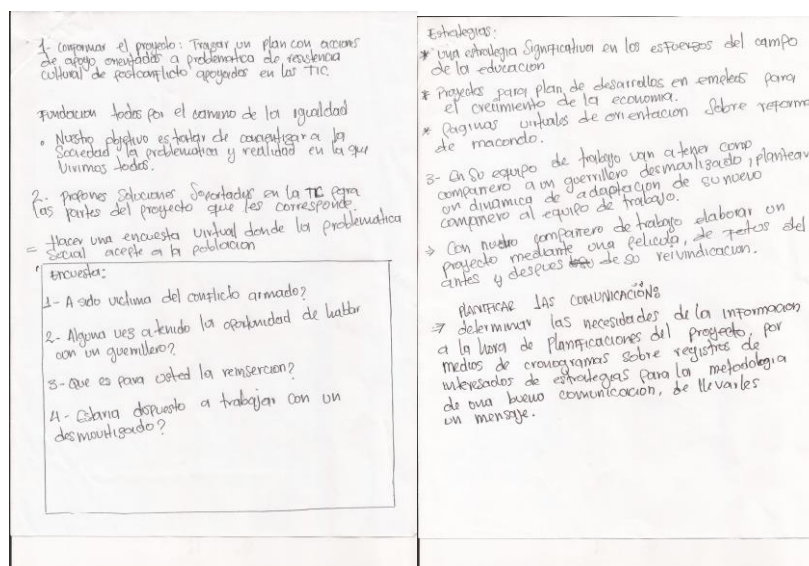 1- conformar el proyecto: Trazar un plan con acciones
de apoyo orientados a problematica de resistencia
cultural de postconflicto apoyados en las TIC.
Fundacion todos por el camino de la igualdad
• Nuestro objetivo es tratar de concientizar a la
Sociedad la problematica y realidad en la que
Vivimos todos.
2- Propones Soluciones Soportadas en la TIC para
las partes del proyecto que les corresponde.
= Hacer una encuesta virtual donde la problematica
Social acepte a la poblacion
Encuesta:
1- A sido victima del conflicto armado?
2- Alguna ves a tenido la oportunidad de hablar
con un guerrillero?
3- Que es para usted la reinsercion?
4- Estaria dispuesto a trabajar con un
desmovilizado?
Estrategias:
* una estrategia Significativa en los esfuerzos del campo
de la educacion
* Proyectos para plan de desarrollos en empleos para
el crecimiento de la economia.
* Paginas virtuales de orientacion Sobre reforma
de macondo.
3- En Su equipo de trabajo van a tener como
compañero a un guerrillero desmovilizado, plantear
un dinamica de adaptacion de su nuevo
compañero al equipo de trabajo.
→ Con nuestro compañero de trabajo elaborar un
proyecto mediante una pelicula, de del
antes y despues de so reivindicacion.
PLANIFICAR LAS COMUNICACIÓNS
→ determinar las necesidades de la informacion
a la hora de Planificaciones del proyecto, por
medios de cronogramas sobre registros de
interesados de estrategias para la metodologia
de una bueno comunicacion, de llevarles
un mensaje.